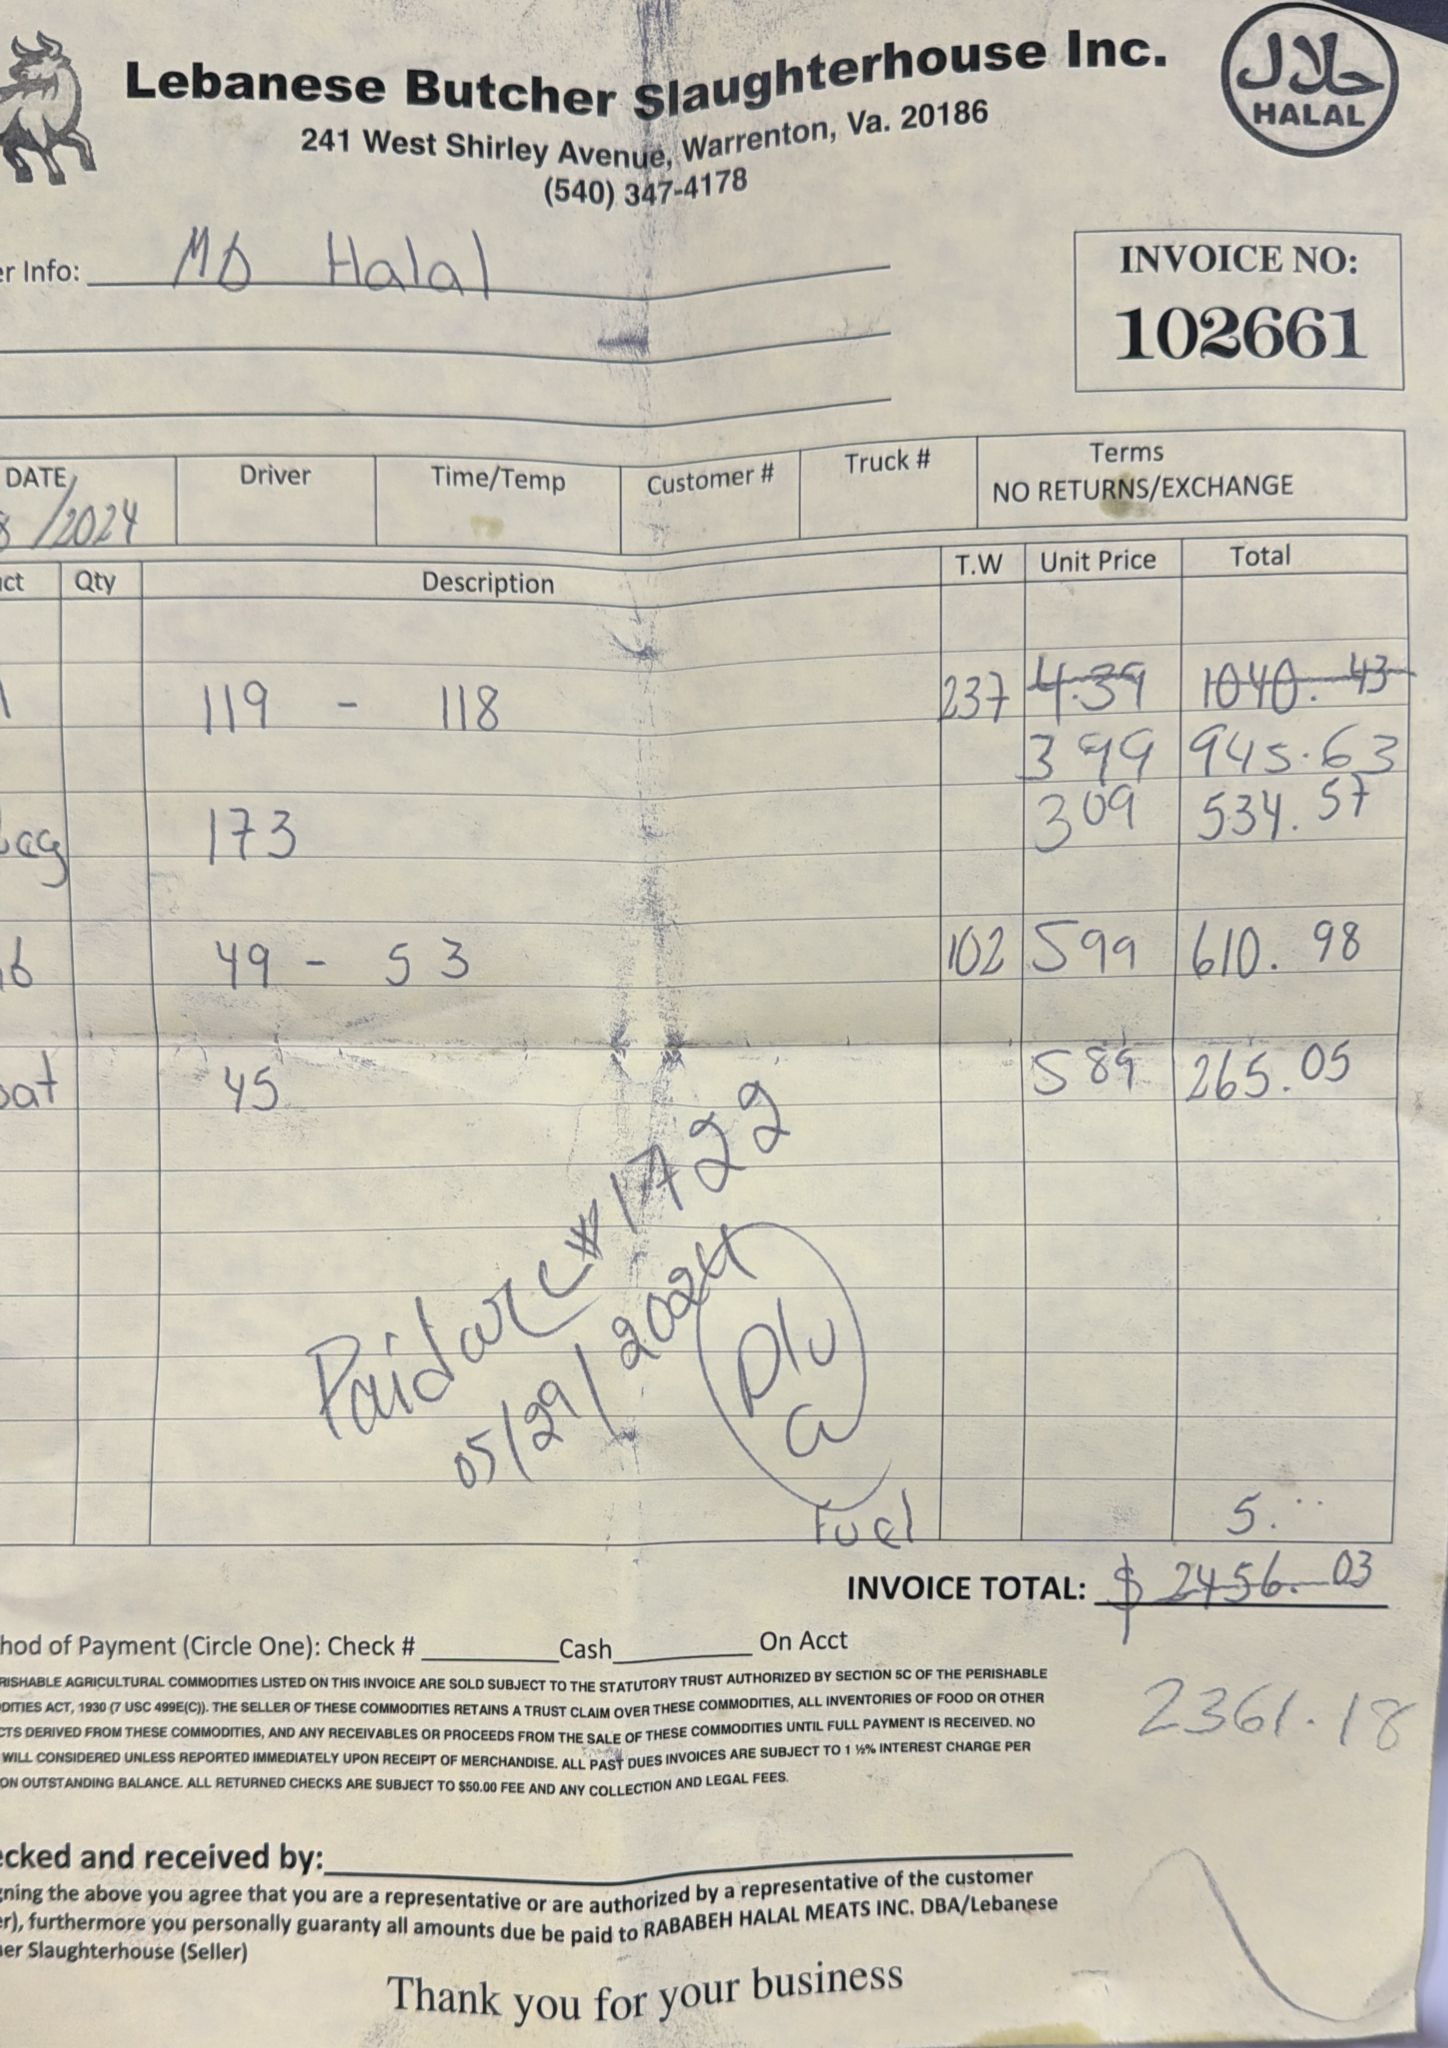 Lebanese Butcher Slaughterhouse Inc.
حلال
HALAL
241 West Shirley Avenue, Warrenton, Va. 20186
(540) 347-4178
er Info: MD Halal
INVOICE NO:
102661
DATE Driver Time/Temp Customer # Truck # Terms
NO RETURNS/EXCHANGE
8/2024
ct Qty Description T.W Unit Price Total
119 - 118 237 4.39 1040.43
399 945.63
173 309 534.57
49 - 53 102 599 610.98
oat 45 589 265.05
Paid #1722
05/29/2024
Fuel 5.
INVOICE TOTAL: $ 2456.03
hod of Payment (Circle One): Check # Cash On Acct
2361.18
RISHABLE AGRICULTURAL COMMODITIES LISTED ON THIS INVOICE ARE SOLD SUBJECT TO THE STATUTORY TRUST AUTHORIZED BY SECTION 5C OF THE PERISHABLE
DITIES ACT, 1930 (7 USC 499E(C)). THE SELLER OF THESE COMMODITIES RETAINS A TRUST CLAIM OVER THESE COMMODITIES, ALL INVENTORIES OF FOOD OR OTHER
CTS DERIVED FROM THESE COMMODITIES, AND ANY RECEIVABLES OR PROCEEDS FROM THE SALE OF THESE COMMODITIES UNTIL FULL PAYMENT IS RECEIVED. NO
WILL CONSIDERED UNLESS REPORTED IMMEDIATELY UPON RECEIPT OF MERCHANDISE. ALL PAST DUES INVOICES ARE SUBJECT TO 1 ½% INTEREST CHARGE PER
ON OUTSTANDING BALANCE. ALL RETURNED CHECKS ARE SUBJECT TO $50.00 FEE AND ANY COLLECTION AND LEGAL FEES.
ecked and received by:
gning the above you agree that you are a representative or are authorized by a representative of the customer
er), furthermore you personally guaranty all amounts due be paid to RABABEH HALAL MEATS INC. DBA/Lebanese
her Slaughterhouse (Seller)
Thank you for your business